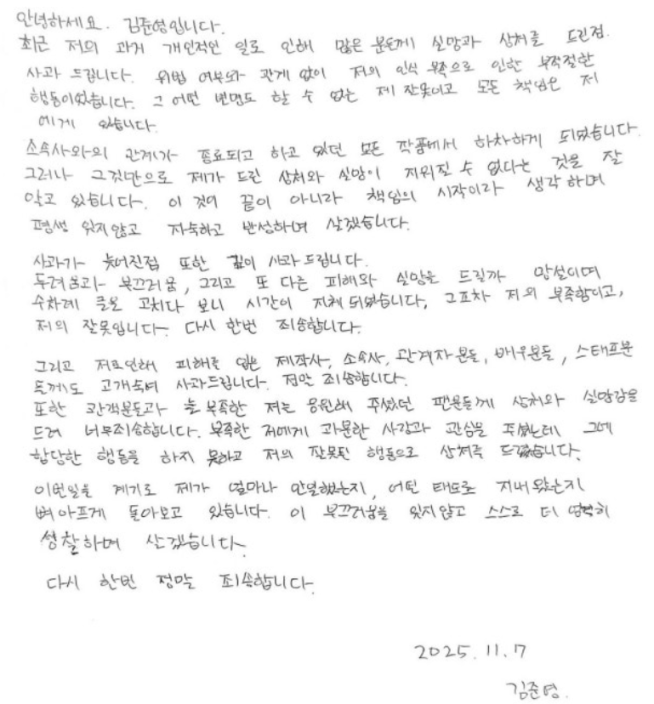 안녕하세요. 김준영입니다.
최근 저의 과거 개인적인 일로 인해 많은 분들께 실망과 상처를 드린점
사과 드립니다. 위법 여부와 관계 없이 저의 인식 부족으로 인한 부적절한
행동이었습니다. 그 어떤 변명도 할 수 없는 제 잘못이고 모든 책임은 저
에게 있습니다.
소속사와의 관계가 종료되고 하고 있던 모든 작품에서 하차하게 되었습니다.
그러나 그것만으로 제가 드린 상처와 실망이 지워질 수 없다는 것을 잘
알고 있습니다. 이 것이 끝이 아니라 책임의 시작이라 생각하며
평생 잊지않고 자숙하고 반성하며 살겠습니다.
사과가 늦어진점 또한 깊이 사과드립니다.
두려움과 부끄러움, 그리고 또 다른 피해와 실망을 드릴까 망설이며
수차례 글을 고치다 보니 시간이 지체 되었습니다, 그조차 저의 부족함이고,
저의 잘못입니다. 다시 한번 죄송합니다.
그리고 저로인해 피해를 입은 제작사, 소속사, 관계자분들, 배우분들, 스태프분
들께도 고개숙여 사과드립니다. 정말 죄송합니다.
또한 관객분들과 늘 부족한 저를 응원해 주셨던 팬분들께 상처와 실망감을
드려 너무죄송합니다. 부족한 저에게 과분한 사랑과 관심을 주셨는데 그에
합당한 행동을 하지 못하고 저의 잘못된 행동으로 상처를 드렸습니다.
이번일을 계기로 제가 얼마나 안일했는지, 어떤 태도로 지내왔는지
뼈아프게 돌아보고 있습니다. 이 부끄러움을 잊지않고 스스로 더 엄격히
성찰하며 살겠습니다.
다시 한번 정말 죄송합니다.
2025. 11. 7
김준영.